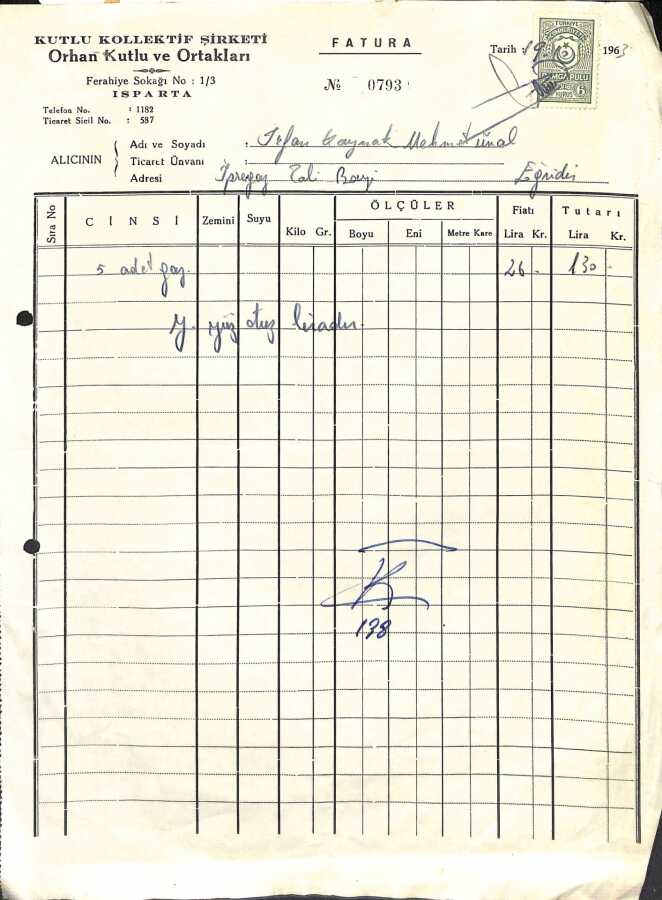 KUTLU KOLLEKTİF ŞİRKETİ
Orhan Kutlu ve Ortakları
Ferahiye Sokağı No : 1/3
ISPARTA
Telefon No. : 1182
Ticaret Sicil No. : 587
FATURA
№ 0793
Tarih : 19 1963
TÜRKİYE CUMHURİYETİ
DAMGA PULU
6 KURUŞ
ALICININ
Adı ve Soyadı : İrfan Kaynak Mehmet Ünal
Ticaret Ünvanı :
Adresi İpragaz Tali Bayi Eğridir
Sıra No CİNSİ Zemini Suyu Kilo Gr. ÖLÇÜLER Boyu Eni Metre Kare Fiatı Lira Kr. Tutarı Lira Kr.
5 adet gaz. 26 - 130 -
Y. yüz otuz liradır.
138